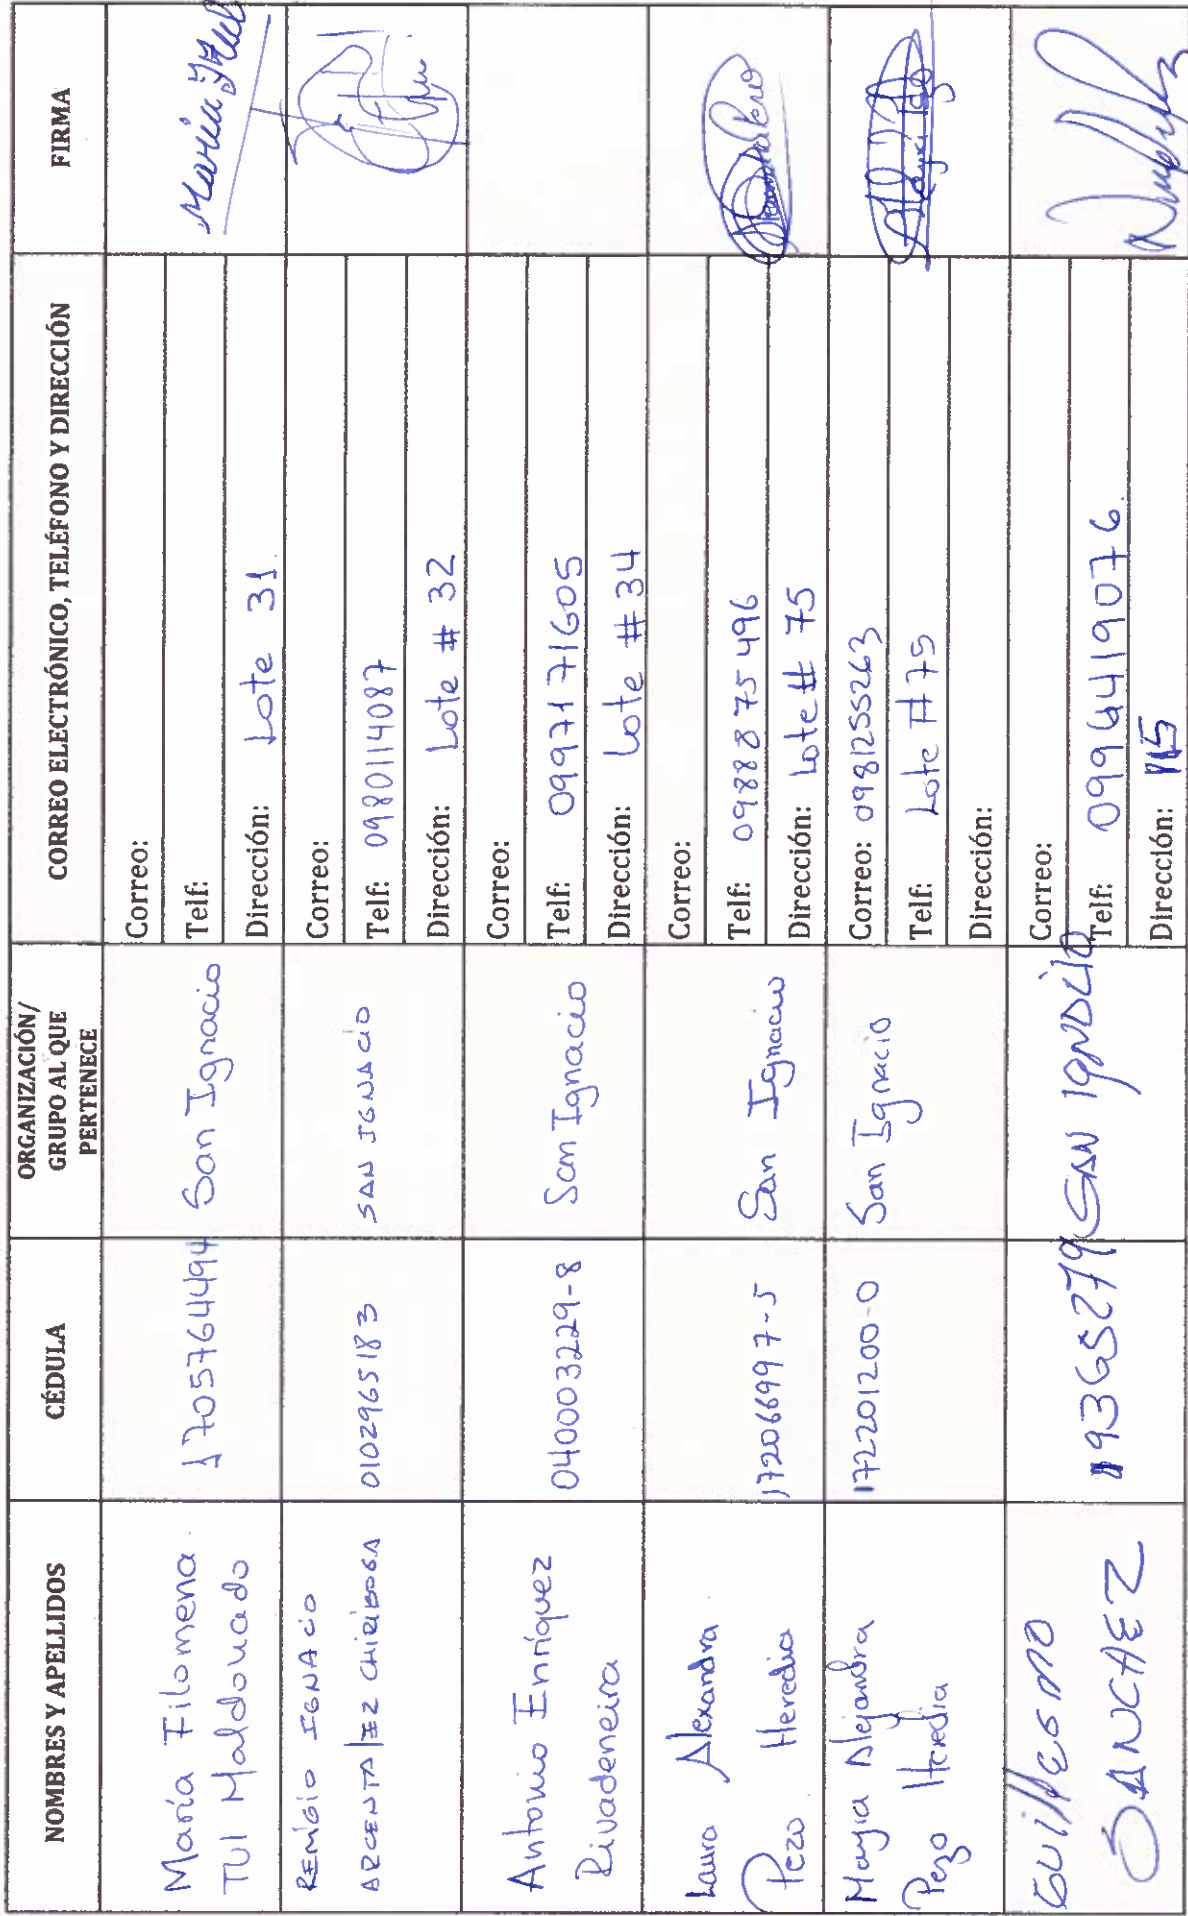 NOMBRES Y APELLIDOS
CÉDULA
ORGANIZACIÓN/
GRUPO AL QUE
PERTENECE
CORREO ELECTRÓNICO, TELÉFONO Y DIRECCIÓN
FIRMA
María Filomena
TUl Maldonado
1705764494
San Ignacio
Correo:
Telf:
Dirección: Lote 31
María
REMIGIO IGNACIO
010296518 3
SAN IGNACIO
Correo:
Telf: 0980114087
Dirección: Lote # 32
Antonio Enríquez
Rivadeneira
04000 3229-8
San Ignacio
Correo:
Telf: 0997171605
Dirección: Lote # 34
Laura Alexandra
Pezo Heredia
17206697-5
San Ignacio
Correo:
Telf: 0988875496
Dirección: Lote # 75
Mayra Alejandra
Pezo Heredia
172201200-0
San Ignacio
Correo: 0981255263
Telf: Lote #75
Dirección:
SANCHEZ
SAN
Correo:
Telf: 0994419076
Dirección: 115